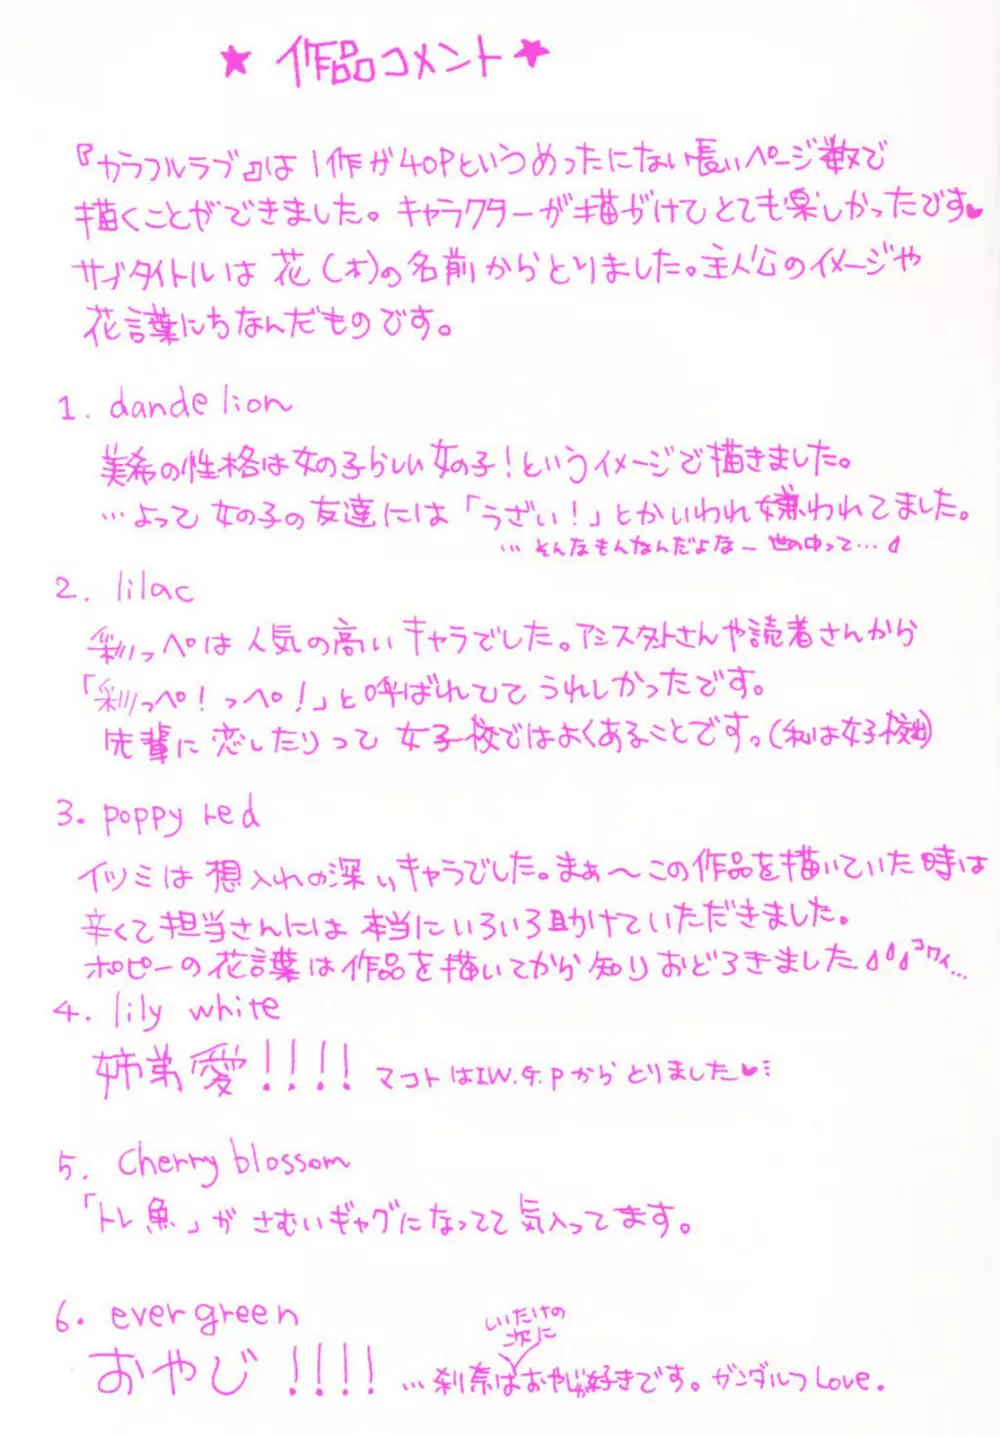 ★ 作品コメント ★
『カラフルラブ』は1作が40Pというめったにない長いページ数で
描くことができました。キャラクターが描がけてとても楽しかったです♥
サブタイトルは花(木)の名前からとりました。主人公のイメージや
花言葉にちなんだものです。
1. dandelion
美希の性格は女の子らしい女の子!というイメージで描きました。
…よって女の子の友達には「うざい!」とかいわれ嫌われてました。
…そんなもんなんだよな~世の中って…
2. lilac
彩っぺは人気の高いキャラでした。アシスタントさんや読者さんから
「彩っぺ!っぺ!」と呼ばれてて うれしかったです。
先輩に恋したりって女子校ではよくあることです。(私は女子校出)
3. poppy red
イツミは想入れの深いキャラでした。まぁ~この作品を描いていた時は
辛くて担当さんには本当にいろいろ助けていただきました。
ポピーの花言葉は作品を描いてから知りおどろきました コワイ…
4. lily white
姉弟愛!!!! マコトはI.W.G.Pからとりました♥
5. Cherry blossom
「トレ魚」がさむいギャグになってて気入ってます。
6. ever green
おやじ!!!! …刹奈はしいたけの次におやじが好きです。ガンダルフLove.